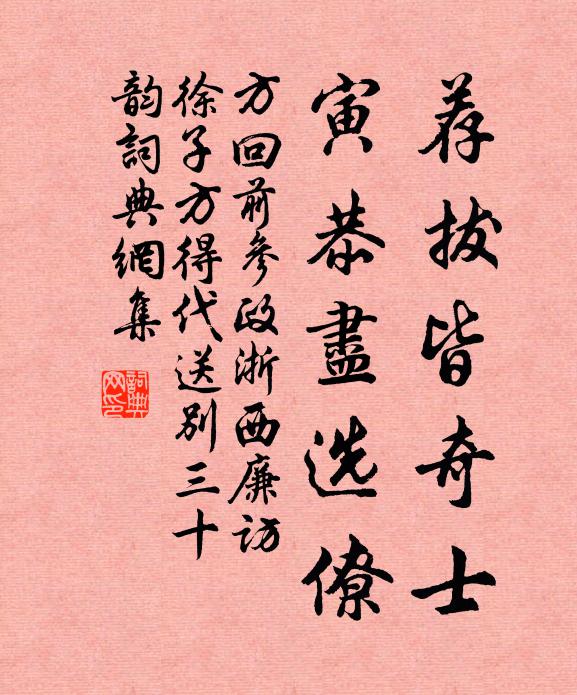 荐拔皆奇士
寅恭盡选僚
方回前參政浙西廉访
徐子方得代送别三十
韵詞典網集
詞典网印